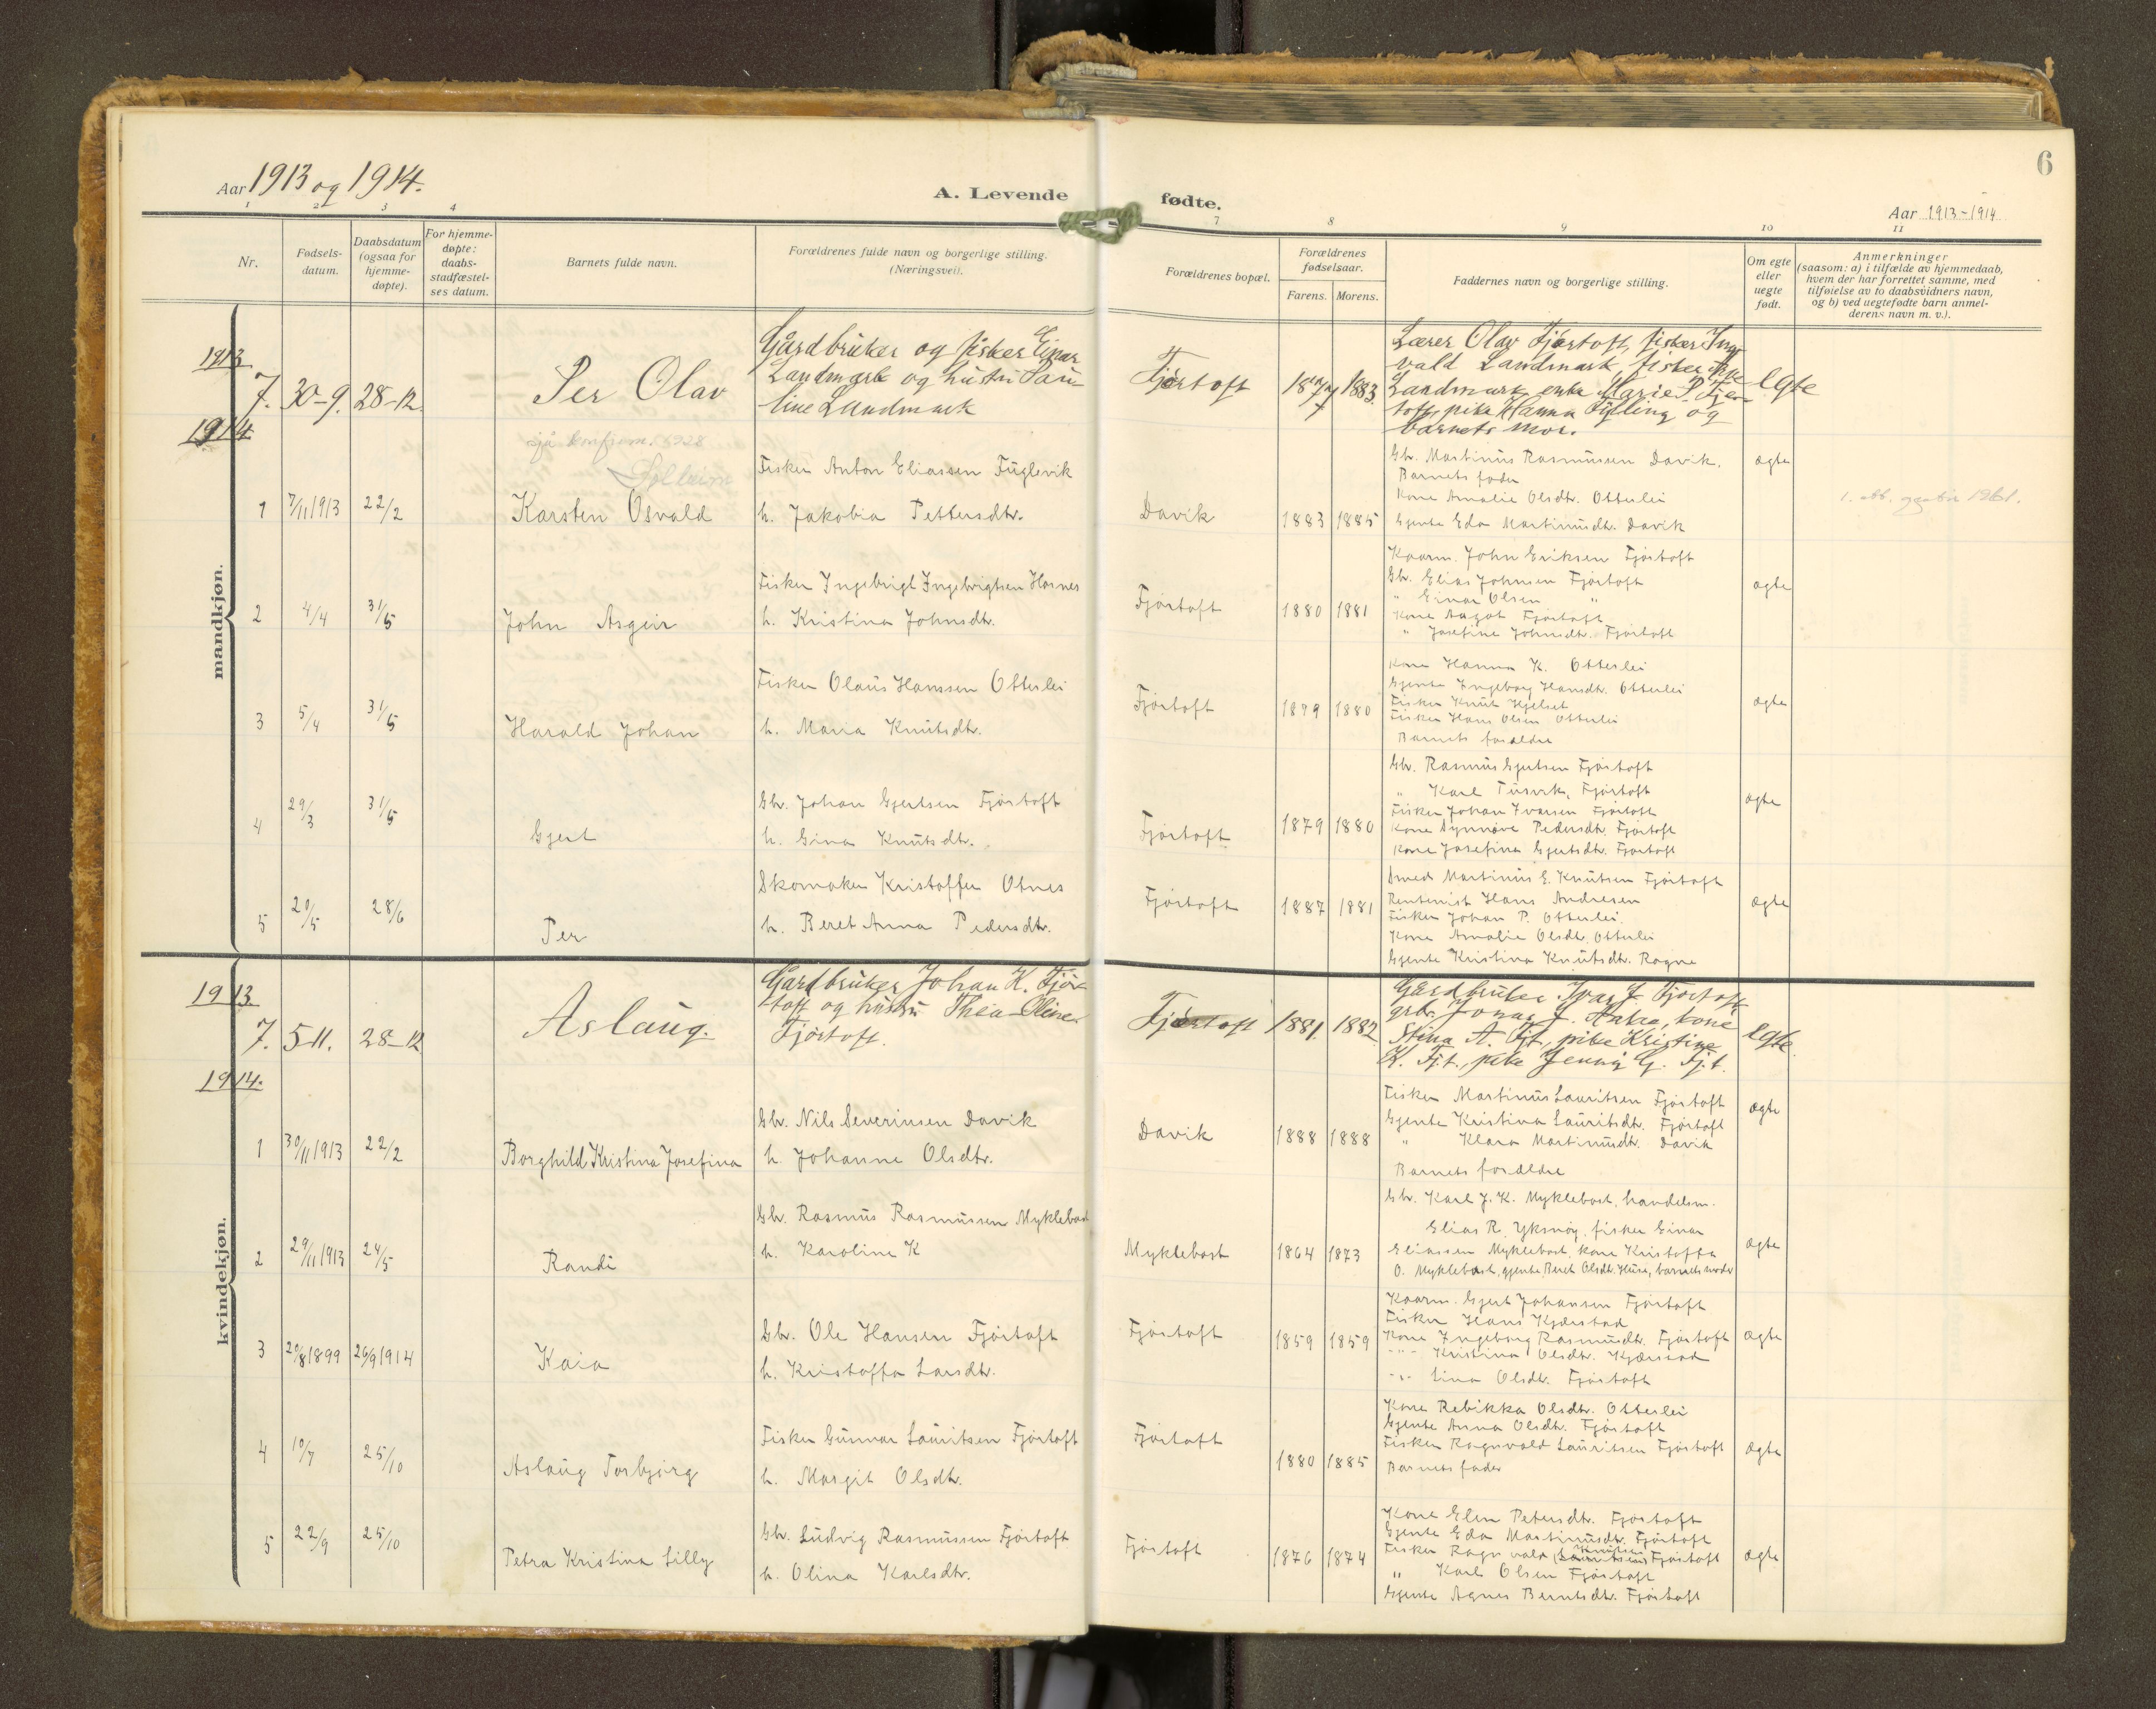 6
Aar 1913 og 1914.
A. Levende fødte.
Aar 1913-1914
1 2 3 4 7 8 9 10 11
Nr.
Fødsels-
datum.
Daabsdatum
(ogsaa for
hjemme-
døpte).
For hjemme-
døpte:
daabs-
stadfæstel-
ses datum.
Barnets fulde navn.
Forældrenes fulde navn og borgerlige stilling.
(Næringsvei).
Forældrenes bopæl.
Forældrenes
fødselsaar.
Farens. Morens.
Faddernes navn og borgerlige stilling.
Om egte
eller
uegte
født.
Anmerkninger
(saasom: a) i tilfælde av hjemmedaab,
hvem der har forrettet samme, med
tilføielse av to daabsvidners navn,
og b) ved uegtefødte barn anmel-
derens navn m. v.).
mandkjøn.
1913
7. 30-9. 28-12. Per Olav
Gårdbruker og fisker Einar
Landmark og hustru Pau-
line Landmark
Fjørtoft 1877 1883.
Lærer Olav Fjørtoft, fisker Ing-
vald Landmark, fisker
Landmark, enke Marie P. Fjør-
toft, pike Hanna Fylling og
barnets mor.
egte
1914
sjå konfirm. 1928
Solheim
1 7/11 1913 22/2 Karsten Osvald
Fisker Anton Eliassen Fuglevik
h. Jakobia Pettersdtr.
Davik 1883 1885
Gbr. Martinus Rasmussen Davik.
Barnets fader
Kone Amalie Olsdtr. Otterlei
Gjente Eda Martinusdtr. Davik
ægte
1. att. 1961.
2 4/4 31/5 John Asgeir
Fisker Ingebrigt Ingebrigtsen Hasnes
h. Kristina Johnsdtr.
Fjørtoft 1880 1881
Kaarm. John Eriksen Fjørtoft
Gbr. Elias Johnsen Fjørtoft
" Einar Olsen "
Kone Aagot Fjørtoft
" Josefine Johnsdtr. Fjørtoft
ægte
3 5/4 31/5 Harald Johan
Fisker Olaus Hanssen Otterlei
h. Maria Knutsdtr.
Fjørtoft 1879 1880
Kone Hanna K. Otterlei
Gjente Ingeborg Hansdtr. Otterlei
Fisker Knut Hjelset
Fisker Hans Olsen Otterlei
Barnets forældre
ægte
4 29/3 31/5 Gjert
Gbr. Johan Gjertsen Fjørtoft
h. Gina Knutsdtr.
Fjørtoft 1879 1880
Gbr. Rasmus Gjertsen Fjørtoft
" Karl Tusvik, Fjørtoft
Fisker Johan Ivarsen Fjørtoft
Kone Synnøve Pedersdtr. Fjørtoft
Kone Josefina Gjertsdtr. Fjørtoft
ægte
5 20/5 28/6 Per
Skomaker Kristoffer Otnes
h. Beret Anna Pedersdtr.
Fjørtoft 1887 1881
Smed Martinus E. Knutsen Fjørtoft
Rentenist Hans Andresen
Fisker Johan P. Otterlei
Kone Amalie Olsdtr. Otterlei
Gjente Kristina Knutsdtr. Rogne
ægte
kvindekjøn.
1913
7. 5-11. 28-12 Aslaug.
Gårdbruker Johan K. Fjør-
toft og hustru Thea Oline
Fjørtoft.
Fjørtoft 1881. 1882
Gårdbruker Ivar J. Fjørtoft,
grbr. Jonas J. Anke, kone
Stina A. Fjt., pike Kristine
K. Fj.t., pike Jenny G. Fj.t.
egte.
1914.
1 30/11 1913 22/2 Borghild Kristina Josefina
Gbr. Nils Severinsen Davik
h. Johanne Olsdtr.
Davik 1888 1888
Fisker Martinus Lauritsen Fjørtoft
Gjente Kristina Lauritsdtr. Fjørtoft
" Klara Martinusdtr. Davik
Barnets forældre
ægte
2 29/11 1913 24/5 Randi
Gbr. Rasmus Rasmussen Myklebost
h. Karoline K
Myklebost 1864 1873
Gbr. Karl J. K. Myklebost, handelsm.
Elias R. Yksnøy, fisker Einar
Eliassen Myklebost, kone Kristoffa
O. Myklebost, gjente Beret Olsdtr. Huse, barnets moder
ægte
3 20/8 1899 26/9 1914 Kaia
Gbr. Ole Hansen Fjørtoft
h. Kristoffa Larsdtr.
Fjørtoft 1859 1859
Kaarm. Gjert Johansen Fjørtoft
Fisker Hans Kjærstad
Kone Ingeborg Rasmusdtr. Fjørtoft
-"- Kristina Olsdtr. Kjærstad
-"- Lina Olsdtr. Fjørtoft
ægte
4 10/7 25/10 Aslaug Torbjørg
Fisker Gunnar Lauritsen Fjørtoft
h. Margit Olsdtr.
Fjørtoft 1880 1885
Kone Rebikka Olsdtr. Otterlei
Gjente Anna Olsdtr. Fjørtoft
Fisker Ragnvald Lauritsen Fjørtoft
Barnets fader
ægte
5 22/9 25/10 Petra Kristina Lilly
Gbr. Ludvig Rasmussen Fjørtoft
h. Olina Karlsdtr.
Fjørtoft 1876 1874
Kone Elen Petersdtr. Fjørtoft
Gjente Eda Martinusdtr. Fjørtoft
Knutsen
Fisker Ragnvald Lauritsen Fjørtoft
" Karl Olsen Fjørtoft
Gjente Agnes Berntsdtr. Fjørtoft
ægte